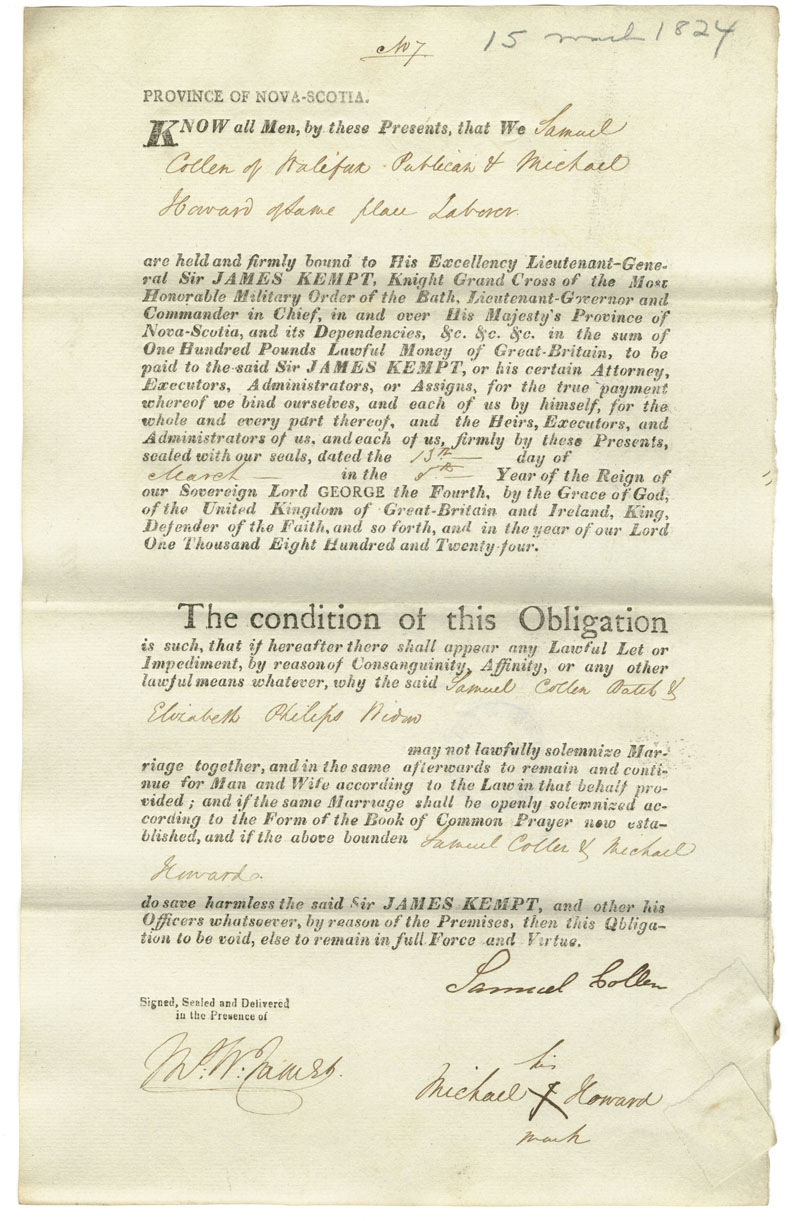 No 7
15 March 1824
PROVINCE OF NOVA-SCOTIA.
KNOW all Men, by these Presents, that We Samuel
Collen of Halifax Publican & Michael
Howard of same place Laborer.
are held and firmly bound to His Excellency Lieutenant-Gene-
ral Sir JAMES KEMPT, Knight Grand Cross of the Most
Honorable Military Order of the Bath, Lieutenant-Governor and
Commander in Chief, in and over His Majesty's Province of
Nova-Scotia, and its Dependencies, &c. &c. &c. in the sum of
One Hundred Pounds Lawful Money of Great-Britain, to be
paid to the said Sir JAMES KEMPT, or his certain Attorney,
Executors, Administrators, or Assigns, for the true payment
whereof we bind ourselves, and each of us by himself, for the
whole and every part thereof, and the Heirs, Executors, and
Administrators of us, and each of us, firmly by these Presents,
sealed with our seals, dated the 15th day of
March in the 5th Year of the Reign of
our Sovereign Lord GEORGE the Fourth, by the Grace of God,
of the United Kingdom of Great-Britain and Ireland, King,
Defender of the Faith, and so forth, and in the year of our Lord
One Thousand Eight Hundred and Twenty-four.
The condition of this Obligation
is such, that if hereafter there shall appear any Lawful Let or
Impediment, by reason of Consanguinity, Affinity, or any other
lawful means whatever, why the said Samuel Collen Batch &
Elizabeth Philips Widow
may not lawfully solemnize Mar-
riage together, and in the same afterwards to remain and conti-
nue for Man and Wife according to the Law in that behalf pro-
vided; and if the same Marriage shall be openly solemnized ac-
cording to the Form of the Book of Common Prayer now esta-
blished, and if the above bounden Samuel Collen & Michael
Howard.
do save harmless the said Sir JAMES KEMPT, and other his
Officers whatsoever, by reason of the Premises, then this Obliga-
tion to be void, else to remain in full Force and Virtue.
Samuel Collen
Signed, Sealed and Delivered
in the Presence of
his
Michael X Howard
mark